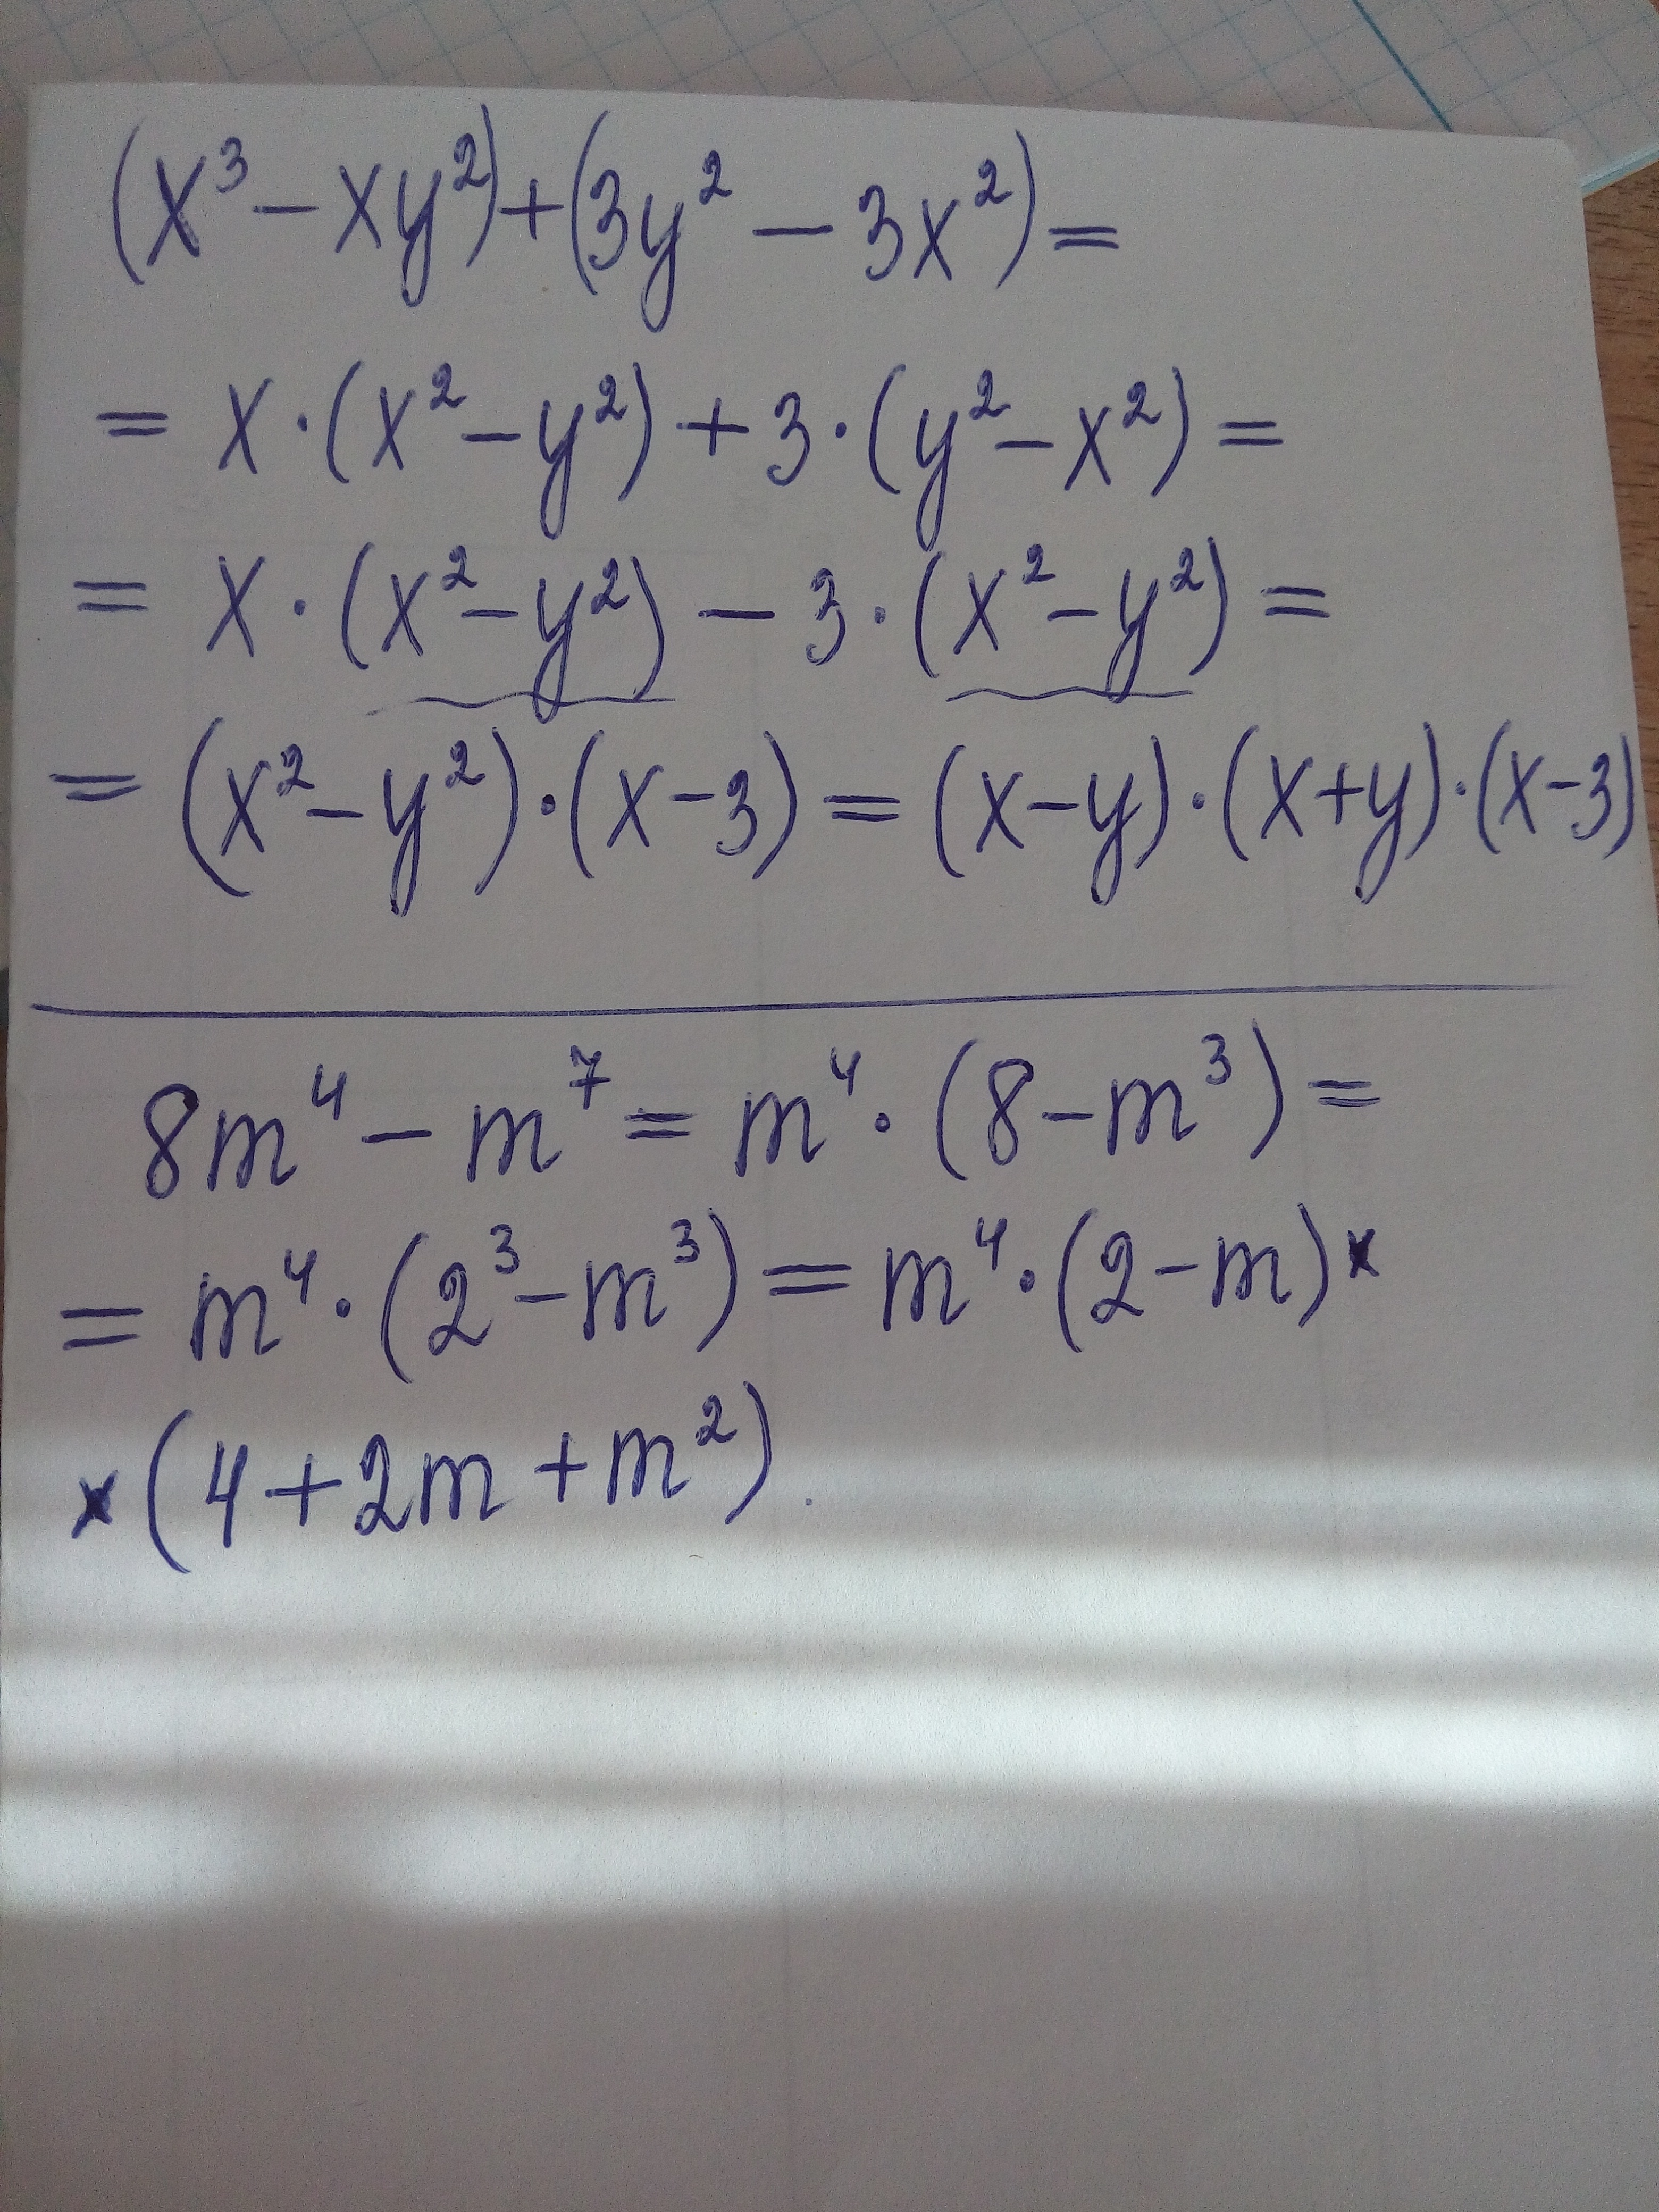 (x³ − xy²) + (3y² − 3x²) =
= x · (x² − y²) + 3 · (y² − x²) =
= x · (x² − y²) − 3 · (x² − y²) =
= (x² − y²) · (x − 3) = (x − y) · (x + y) · (x − 3)
8m⁴ − m⁷ = m⁴ · (8 − m³) =
= m⁴ · (2³ − m³) = m⁴ · (2 − m) ×
× (4 + 2m + m²).